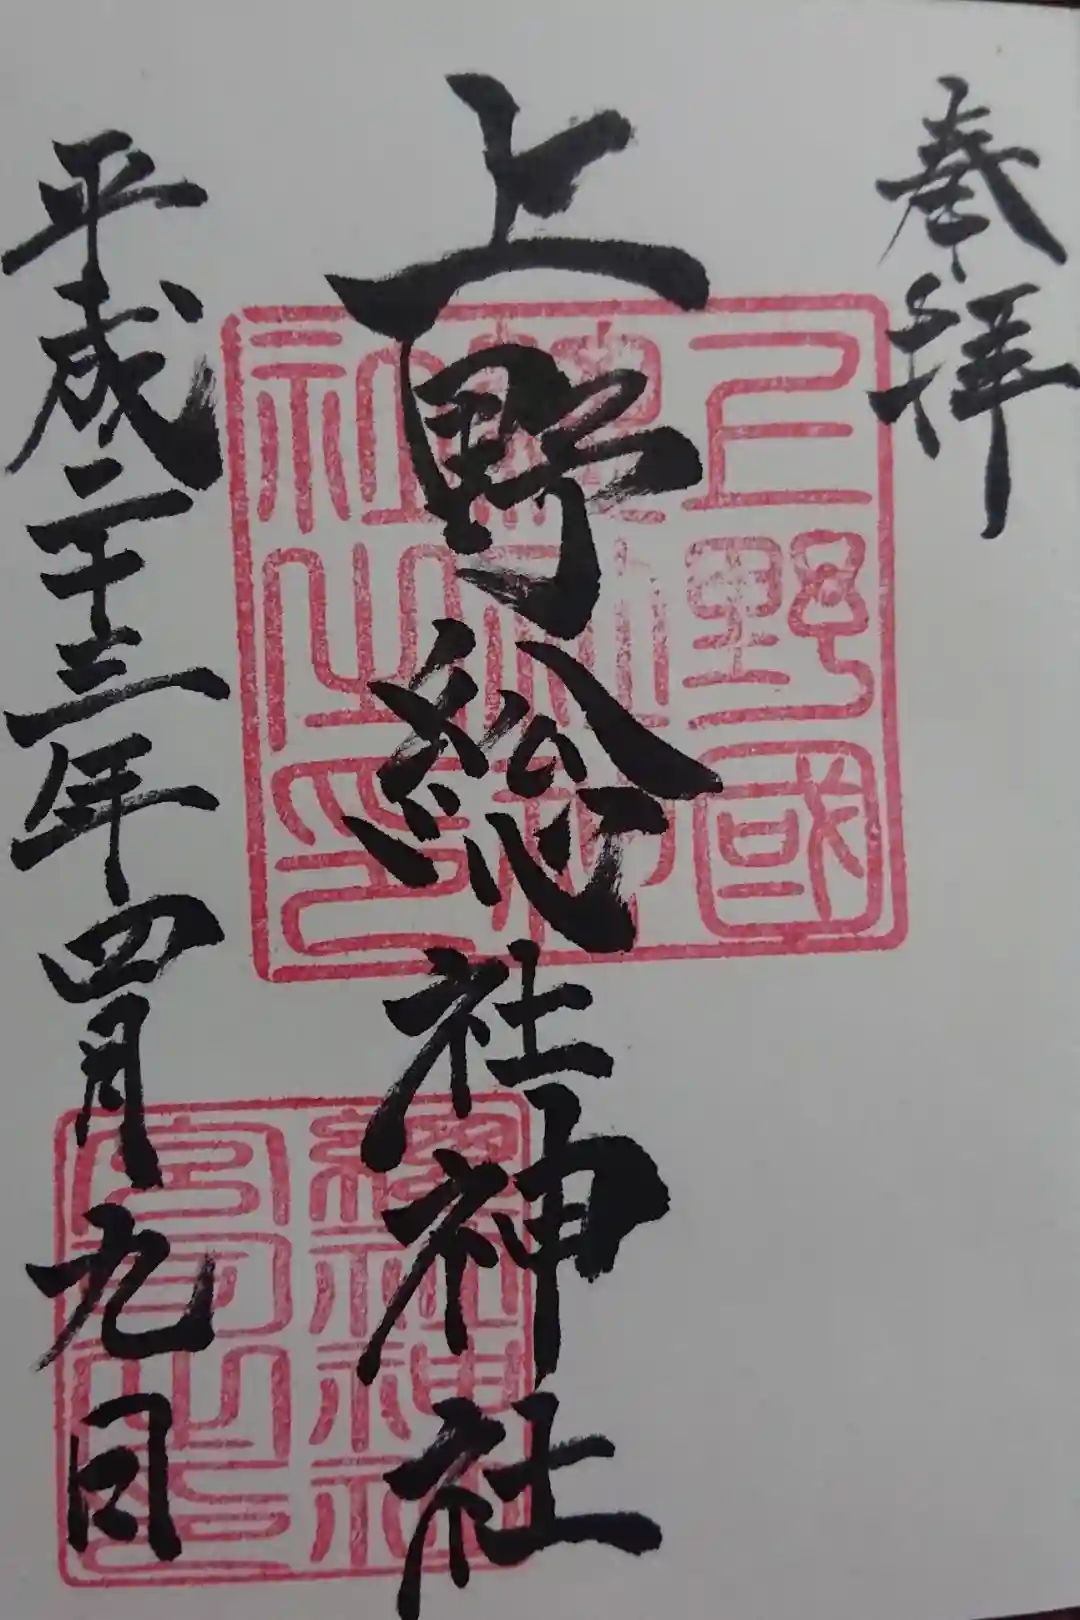 奉拝
上野総社神社
平成二十三年四月九日
上野國
社之印
総社神社
宮司之印